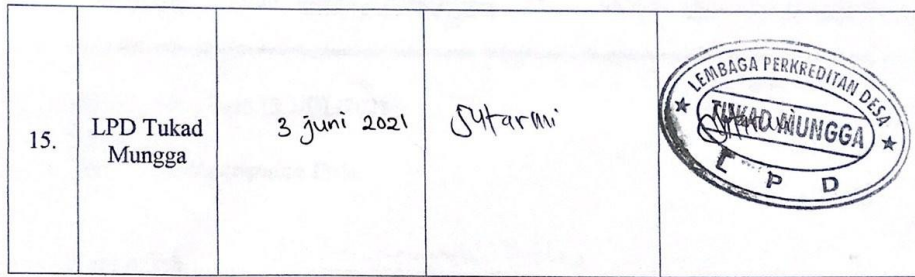 15.
LPD Tukad
Mungga
3 Juni 2021
Sutarmi
LEMBAGA PERKREDITAN DESA
TUKAD MUNGGA
L P D